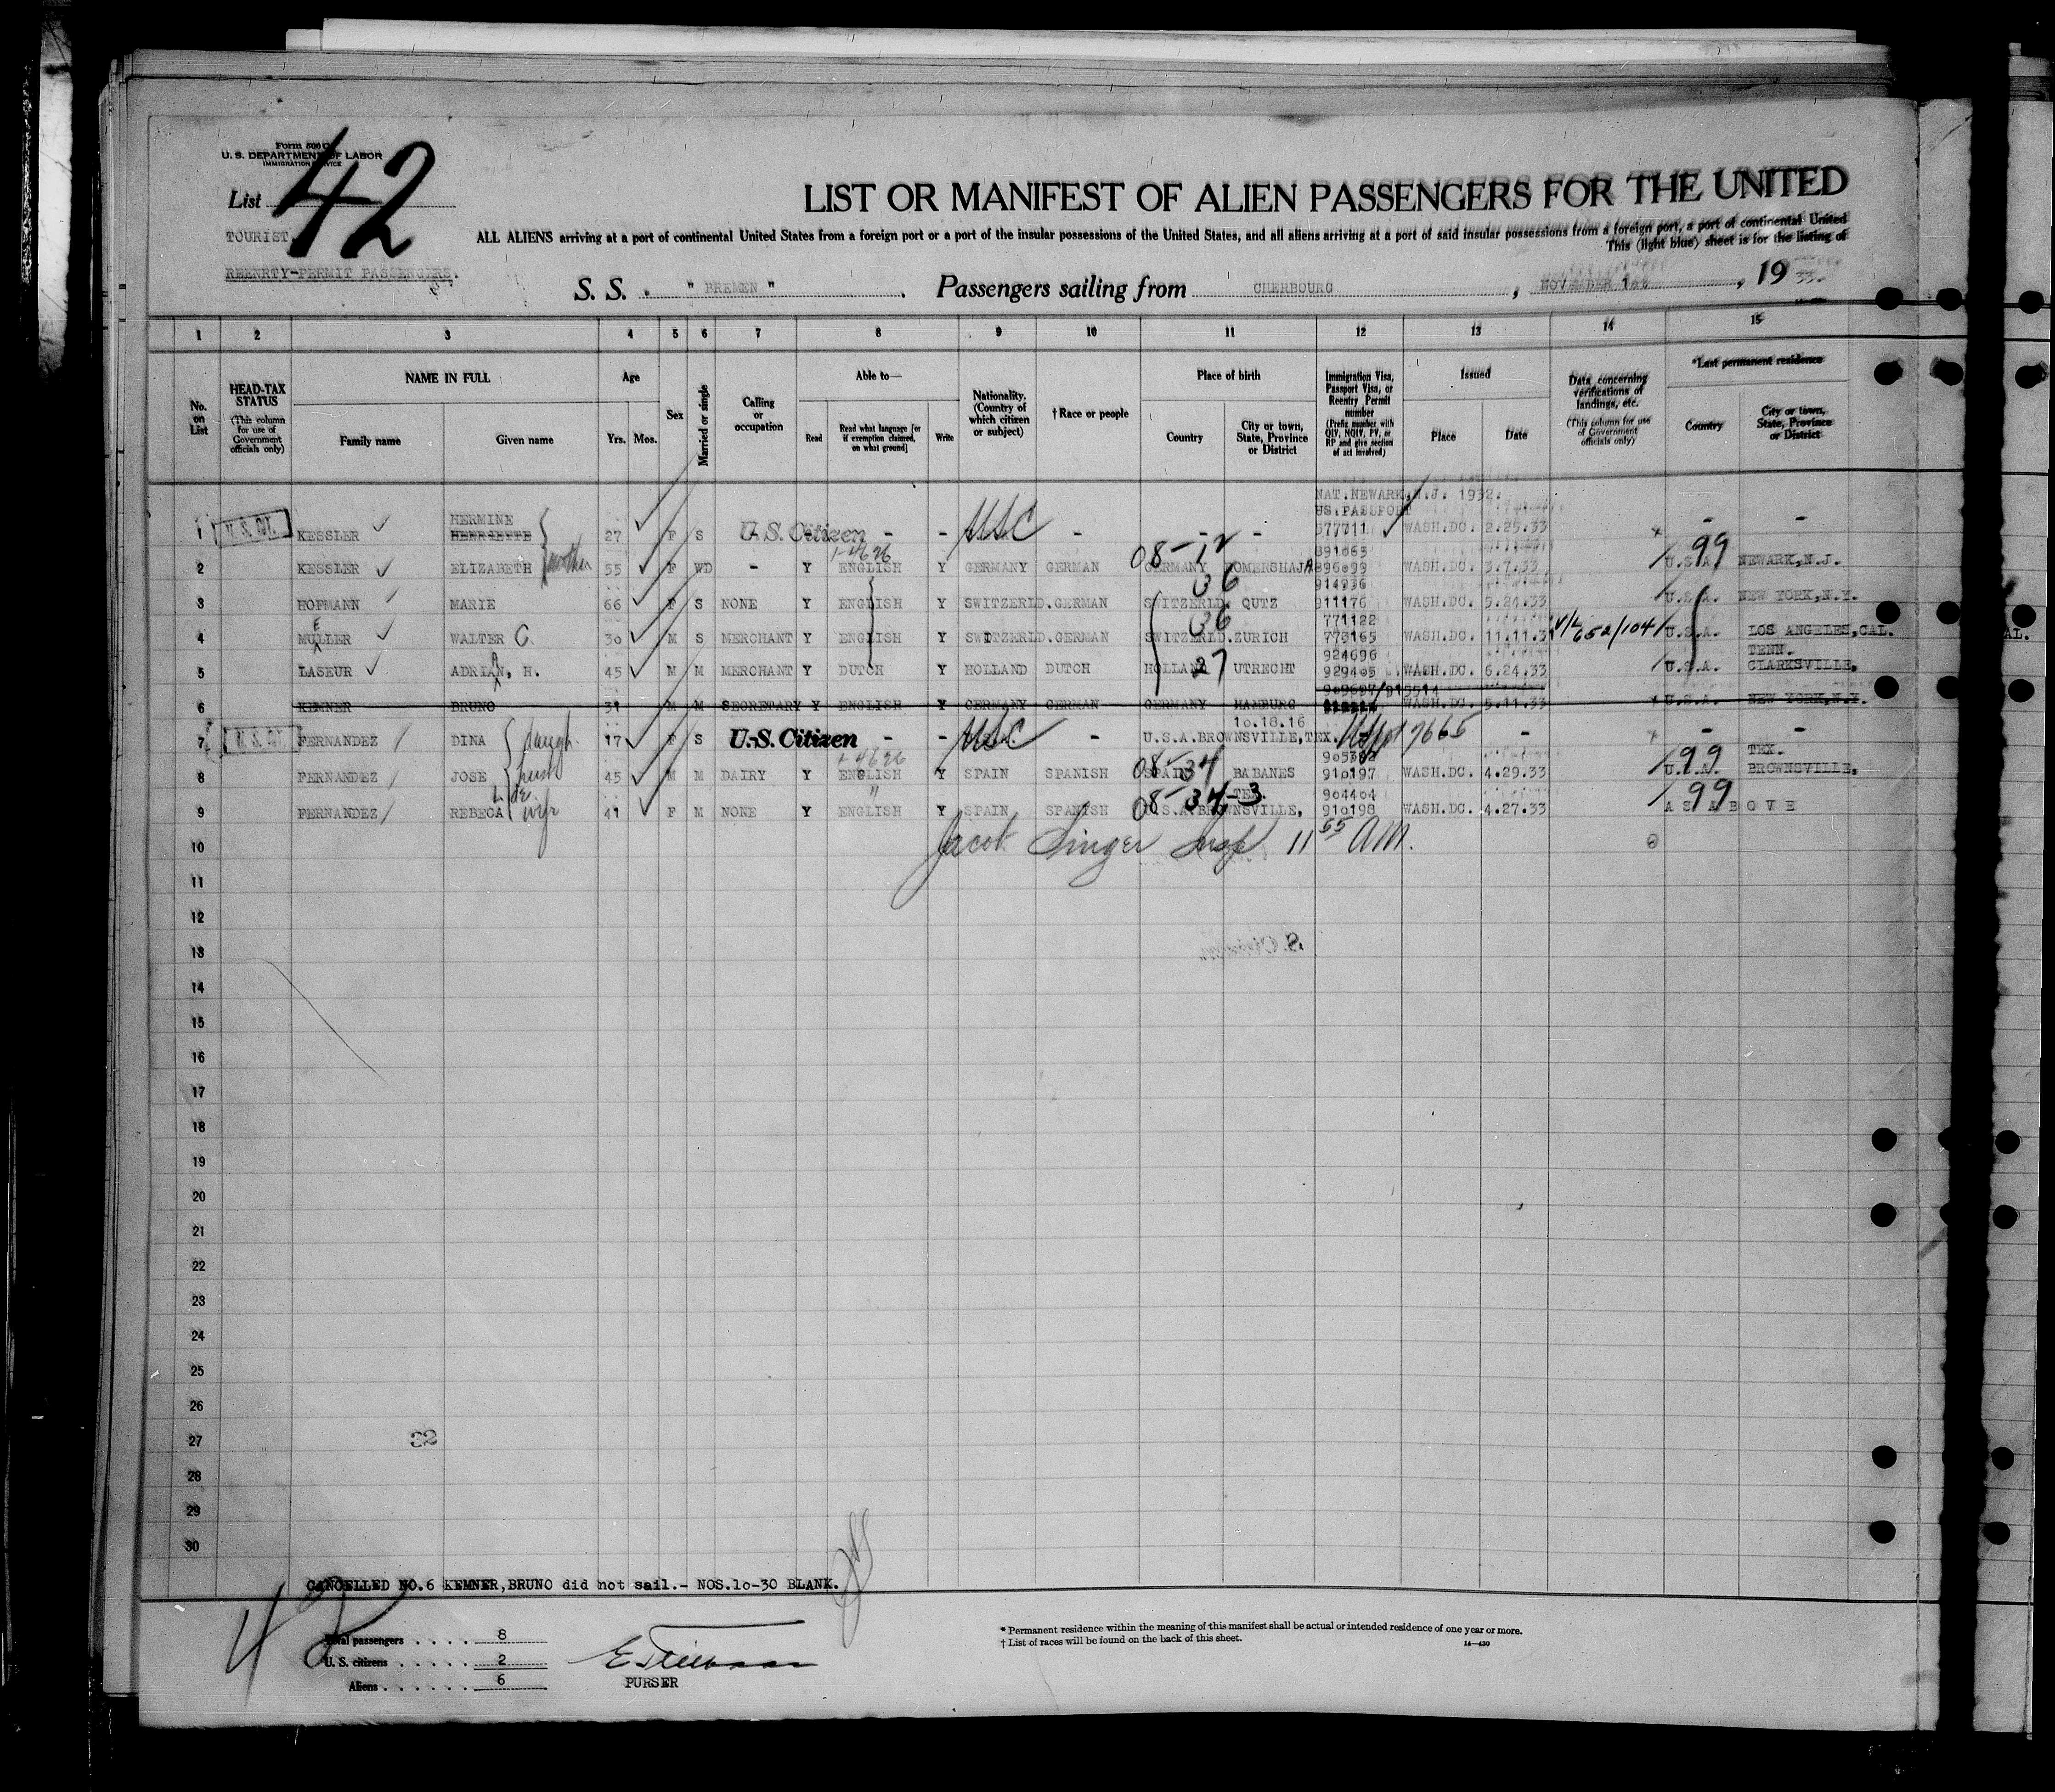 Form 500 C
U. S. DEPARTMENT OF LABOR
IMMIGRATION SERVICE
List 42
TOURIST
REENRTY-PERMIT PASSENGERS.
LIST OR MANIFEST OF ALIEN PASSENGERS FOR THE UNITED
ALL ALIENS arriving at a port of continental United States from a foreign port or a port of the insular possessions of the United States, and all aliens arriving at a port of said insular possessions from a foreign port, a port of continental United
This (light blue) sheet is for the listing of
S. S. " BREMEN " Passengers sailing from CHERBOURG , NOVEMBER 1st , 19 33.
1 2 3 4 5 6 7 8 9 10 11 12 13 14 15
No. on List
HEAD-TAX STATUS (This column for use of Government officials only)
NAME IN FULL Family name Given name
Age Yrs. Mos.
Sex
Married or single
Calling or occupation
Able to— Read Read what language [or if exemption claimed, on what ground] Write
Nationality. (Country of which citizen or subject)
† Race or people
Place of birth Country City or town, State, Province or District
Immigration Visa, Passport Visa, or Reentry Permit number (Prefix number with QIV, NQIV, PV, or RP and give section of act involved)
Issued Place Date
Data concerning verifications of landings, etc. (This column for use of Government officials only)
*Last permanent residence Country City or town, State, Province or District
NAT. NEWARK, N.J. 1932.
HERMINE US.PASSPORT
1 KESSLER HENRIETTE 27 F S U.S. Citizen - - USC - - - 577711 WASH.DC. 2.25.33 - -
1-4626 08-12 891065 99
2 KESSLER ELIZABETH mother 55 F WD - Y ENGLISH Y GERMANY GERMAN GERMANY OMERSHAJA 896099 WASH.DC. 3.7.33 U.S.A. NEWARK,N.J.
36 914936
3 HOFMANN MARIE 66 F S NONE Y ENGLISH Y SWITZERLD.GERMAN SWITZERLD. QUTZ 911176 WASH.DC. 5.24.33 U.S.A. NEW YORK,N.Y.
E 36 771122
4 MULLER WALTER C. 30 M S MERCHANT Y ENGLISH Y SWITZERLD.GERMAN SWITZERLD.ZURICH 773165 WASH.DC. 11.11.3 V/L 652/104 U.S.A. LOS ANGELES,CAL.
924696 TENN.
5 LASEUR ADRIAN, H. 45 M M MERCHANT Y DUTCH Y HOLLAND DUTCH HOLLAND 27 UTRECHT 929405 WASH.DC. 6.24.33 U.S.A. CLARKSVILLE,
909697/915514
6 KEMNER BRUNO 31 M M SECRETARY Y ENGLISH Y GERMANY GERMAN GERMANY HAMBURG WASH.DC. 5.11.33 U.S.A. NEW YORK,N.Y.
10.18.16
7 FERNANDEZ DINA daugh. 17 F S U.S. Citizen - - USC - U.S.A.BROWNSVILLE,TEX. 7665 - - -
1-4626 08-34 99 TEX.
8 FERNANDEZ JOSE husb 45 M M DAIRY Y ENGLISH Y SPAIN SPANISH SPAIN BABANES 910197 WASH.DC. 4.29.33 U.S.A. BROWNSVILLE,
L. de " 08-34-3 TEX. 904404 99
9 FERNANDEZ REBECA wife 41 F M NONE Y ENGLISH Y SPAIN SPANISH U.S.A.BROWNSVILLE, 910198 WASH.DC. 4.27.33 AS ABOVE
10 Jacob Singer Insp 11 55 AM.
11
12
13
14
15
16
17
18
19
20
21
22
23
24
25
26
27 32
28
29
30
CANCELLED NO.6 KEMNER,BRUNO did not sail.- NOS.10-30 BLANK.
42
Total passengers . . . . 8
U. S. citizens . . . . . 2
Aliens . . . . . . 6
PURSER
* Permanent residence within the meaning of this manifest shall be actual or intended residence of one year or more.
† List of races will be found on the back of this sheet.
14—430